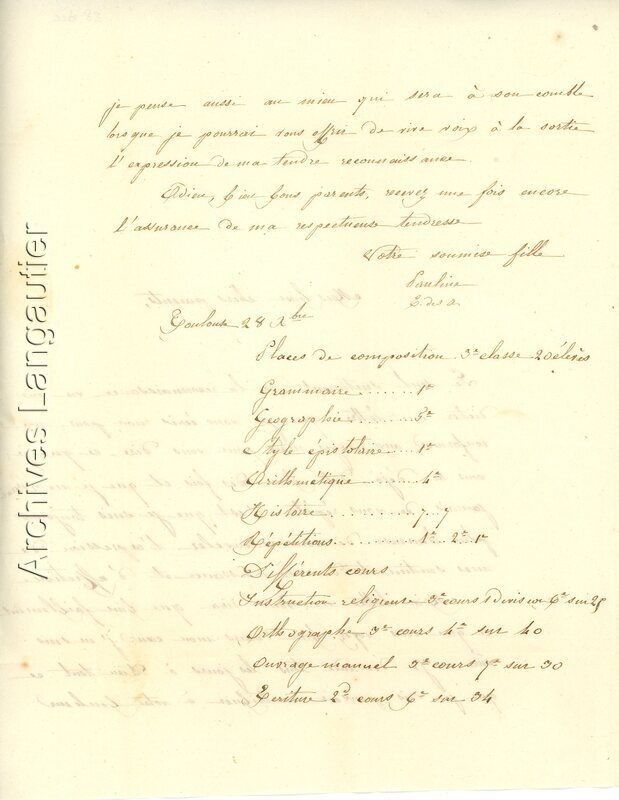 je pense aussi au mien qui sera à son comble
lorsque je pourrai vous offrir de vive voix à la sortie
l'expression de ma tendre reconnaissance.
Adieu, bien bons parents, recevez une fois encore
l'assurance de ma respectueuse tendresse
Votre soumise fille
Pauline
E. des a.
Toulouse 28 Xbre
Places de composition 3e classe 20 élèves
Grammaire ...... 1re
Geographie ..... 3e
Style épistolaire .... 1re
Arithmétique ...... 4e
Histoire .......... 7 7
Répétitions ........ 1re 2e 1re
Différents cours
Instruction religieuse 3e cours 1 Division 6e sur 25
Orthographe 3e cours 4e sur 40
Ouvrage manuel 3e cours 7e sur 30
Ecriture 2d cours 6e sur 34
Archives Langautier